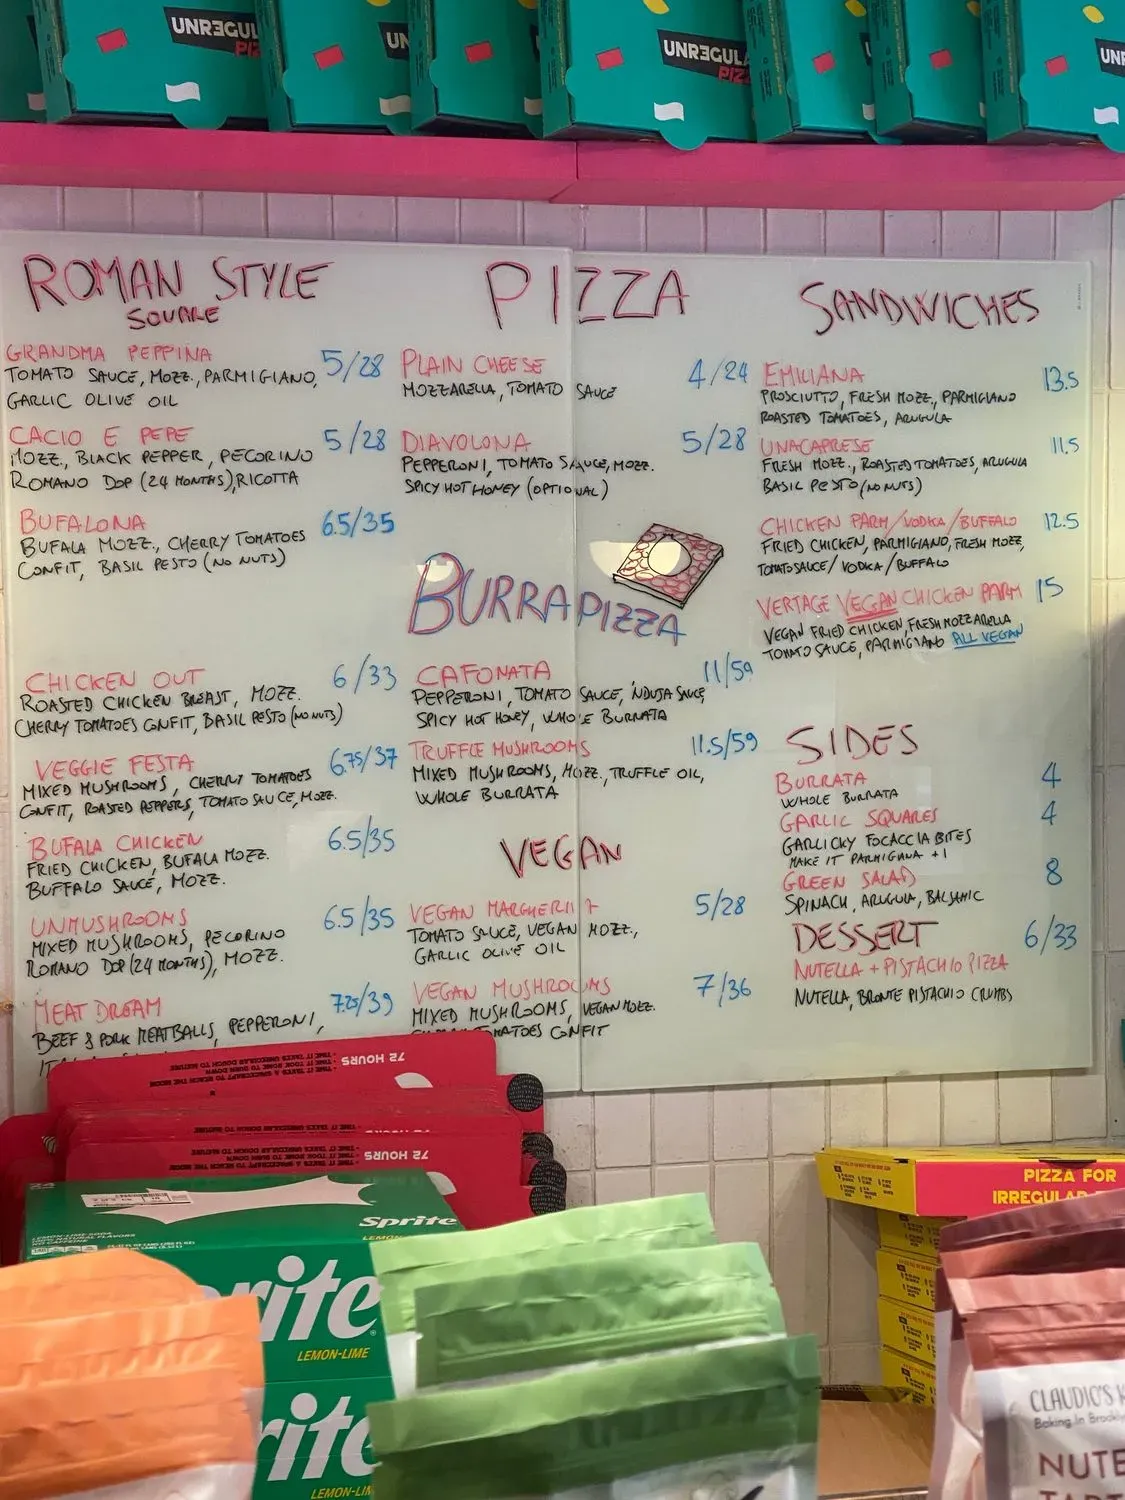 UNREGUL
PIZ
UN
UNREGULA
PIZ
UN
ROMAN STYLE
SQUARE
GRANDMA PEPPINA 5/28
TOMATO SAUCE, MOZZ., PARMIGIANO,
GARLIC OLIVE OIL
CACIO E PEPE 5/28
MOZZ., BLACK PEPPER, PECORINO
ROMANO DOP (24 MONTHS), RICOTTA
BUFALONA 6.5/35
BUFALA MOZZ., CHERRY TOMATOES
CONFIT, BASIL PESTO (NO NUTS)
CHICKEN OUT 6/33
ROASTED CHICKEN BREAST, MOZZ.
CHERRY TOMATOES CONFIT, BASIL PESTO (NO NUTS)
VEGGIE FESTA 6.75/37
MIXED MUSHROOMS, CHERRY TOMATOES
CONFIT, ROASTED PEPPERS, TOMATO SAUCE, MOZZ.
BUFALA CHICKEN 6.5/35
FRIED CHICKEN, BUFALA MOZZ.
BUFFALO SAUCE, MOZZ.
UNMUSHROOMS 6.5/35
MIXED MUSHROOMS, PECORINO
ROMANO DOP (24 MONTHS), MOZZ.
MEAT DREAM 7.25/39
BEEF & PORK MEATBALLS, PEPPERONI,
PIZZA
PLAIN CHEESE 4/24
MOZZARELLA, TOMATO SAUCE
DIAVOLONA 5/28
PEPPERONI, TOMATO SAUCE, MOZZ.
SPICY HOT HONEY (OPTIONAL)
BURRAPIZZA
CAFONATA 11/59
PEPPERONI, TOMATO SAUCE, 'NDUJA SAUCE,
SPICY HOT HONEY, WHOLE BURRATA
TRUFFLE MUSHROOMS 11.5/59
MIXED MUSHROOMS, MOZZ., TRUFFLE OIL,
WHOLE BURRATA
VEGAN
VEGAN MARGHERITA 5/28
TOMATO SAUCE, VEGAN MOZZ.,
GARLIC OLIVE OIL
VEGAN MUSHROOMS 7/36
MIXED MUSHROOMS, VEGAN MOZZ.
MATOES CONFIT
SANDWICHES
EMILIANA 13.5
PROSCIUTTO, FRESH MOZZ., PARMIGIANO
ROASTED TOMATOES, ARUGULA
UNACAPRESE 11.5
FRESH MOZZ., ROASTED TOMATOES, ARUGULA
BASIL PESTO (NO NUTS)
CHICKEN PARM/VODKA/BUFFALO 12.5
FRIED CHICKEN, PARMIGIANO, FRESH MOZZ,
TOMATO SAUCE/VODKA/BUFFALO
VERTAGE VEGAN CHICKEN PARM 15
VEGAN FRIED CHICKEN, FRESH MOZZARELLA
TOMATO SAUCE, PARMIGIANO ALL VEGAN
SIDES
BURRATA 4
WHOLE BURRATA
GARLIC SQUARES 4
GARLICKY FOCACCIA BITES
MAKE IT PARMIGIANA +1
GREEN SALAD 8
SPINACH, ARUGULA, BALSAMIC
DESSERT 6/33
NUTELLA + PISTACHIO PIZZA
NUTELLA, BRONTE PISTACHIO CRUMBS
72 HOURS
- TIME IT TAKES UNREGULAR DOUGH TO MATURE
- TIME IT TOOK ROME TO BURN DOWN
- TIME IT TAKES A SPACECRAFT TO REACH THE MOON
72 HOURS
Sprite
LEMON-LIME
rite
LEMON-LIME
PIZZA FOR
IRREGULAR
CLAUDIO'S
Baking in Brookly
NUTE
TART